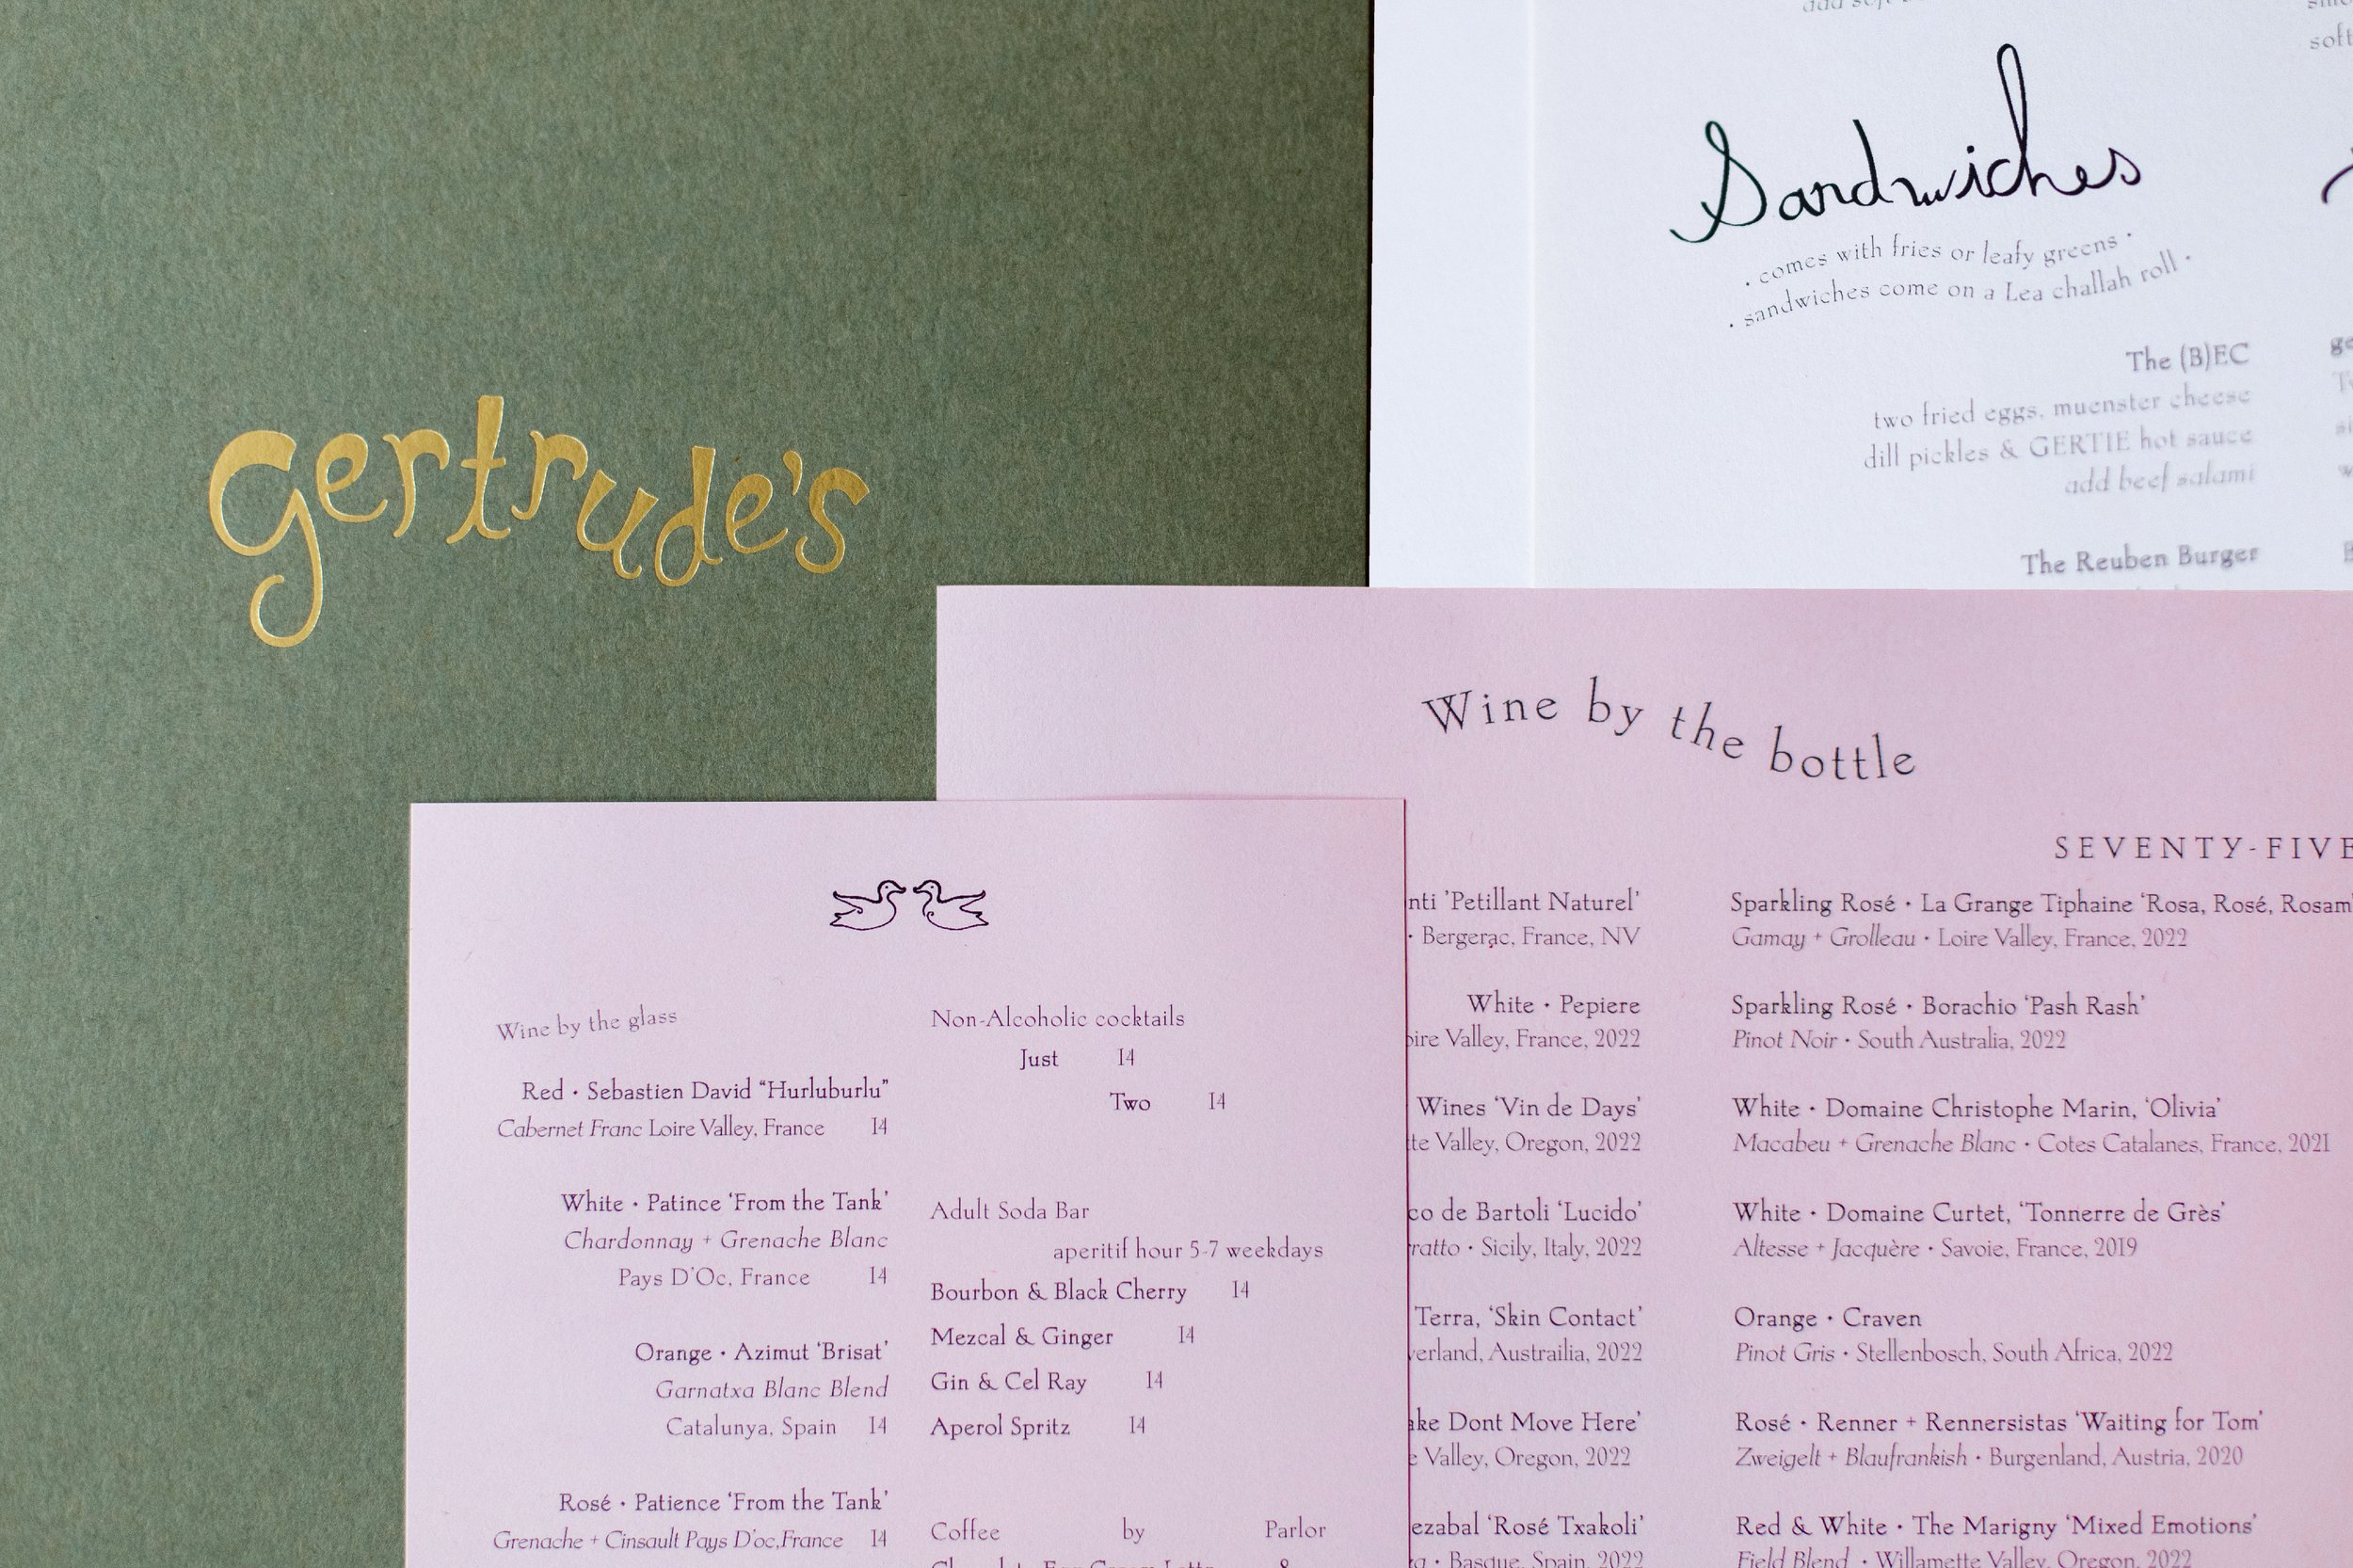 gertrude's
add soft
soft
Sandwiches
· comes with fries or leafy greens ·
· sandwiches come on a Lea challah roll ·
The (B)EC
two fried eggs, muenster cheese
dill pickles & GERTIE hot sauce
add beef salami
The Reuben Burger
Wine by the bottle
SEVENTY-FIVE
nti 'Petillant Naturel'
· Bergerac, France, NV
White · Pepiere
oire Valley, France, 2022
Wines 'Vin de Days'
te Valley, Oregon, 2022
co de Bartoli 'Lucido'
ratto · Sicily, Italy, 2022
Terra, 'Skin Contact'
verland, Austrailia, 2022
ake Dont Move Here'
e Valley, Oregon, 2022
ezabal 'Rosé Txakoli'
a · Basque, Spain, 2022
Sparkling Rosé · La Grange Tiphaine 'Rosa, Rosé, Rosam'
Gamay + Grolleau · Loire Valley, France, 2022
Sparkling Rosé · Borachio 'Pash Rash'
Pinot Noir · South Australia, 2022
White · Domaine Christophe Marin, 'Olivia'
Macabeu + Grenache Blanc · Cotes Catalanes, France, 2021
White · Domaine Curtet, 'Tonnerre de Grès'
Altesse + Jacquère · Savoie, France, 2019
Orange · Craven
Pinot Gris · Stellenbosch, South Africa, 2022
Rosé · Renner + Rennersistas 'Waiting for Tom'
Zweigelt + Blaufrankish · Burgenland, Austria, 2020
Red & White · The Marigny 'Mixed Emotions'
Field Blend · Willamette Valley, Oregon, 2022
Wine by the glass
Red · Sebastien David “Hurluburlu”
Cabernet Franc Loire Valley, France 14
White · Patince 'From the Tank'
Chardonnay + Grenache Blanc
Pays D'Oc, France 14
Orange · Azimut 'Brisat'
Garnatxa Blanc Blend
Catalunya, Spain 14
Rosé · Patience 'From the Tank'
Grenache + Cinsault Pays D'oc,France 14
Non-Alcoholic cocktails
Just 14
Two 14
Adult Soda Bar
aperitif hour 5-7 weekdays
Bourbon & Black Cherry 14
Mezcal & Ginger 14
Gin & Cel Ray 14
Aperol Spritz 14
Coffee by Parlor
Chocolate Egg Cream Latte 8